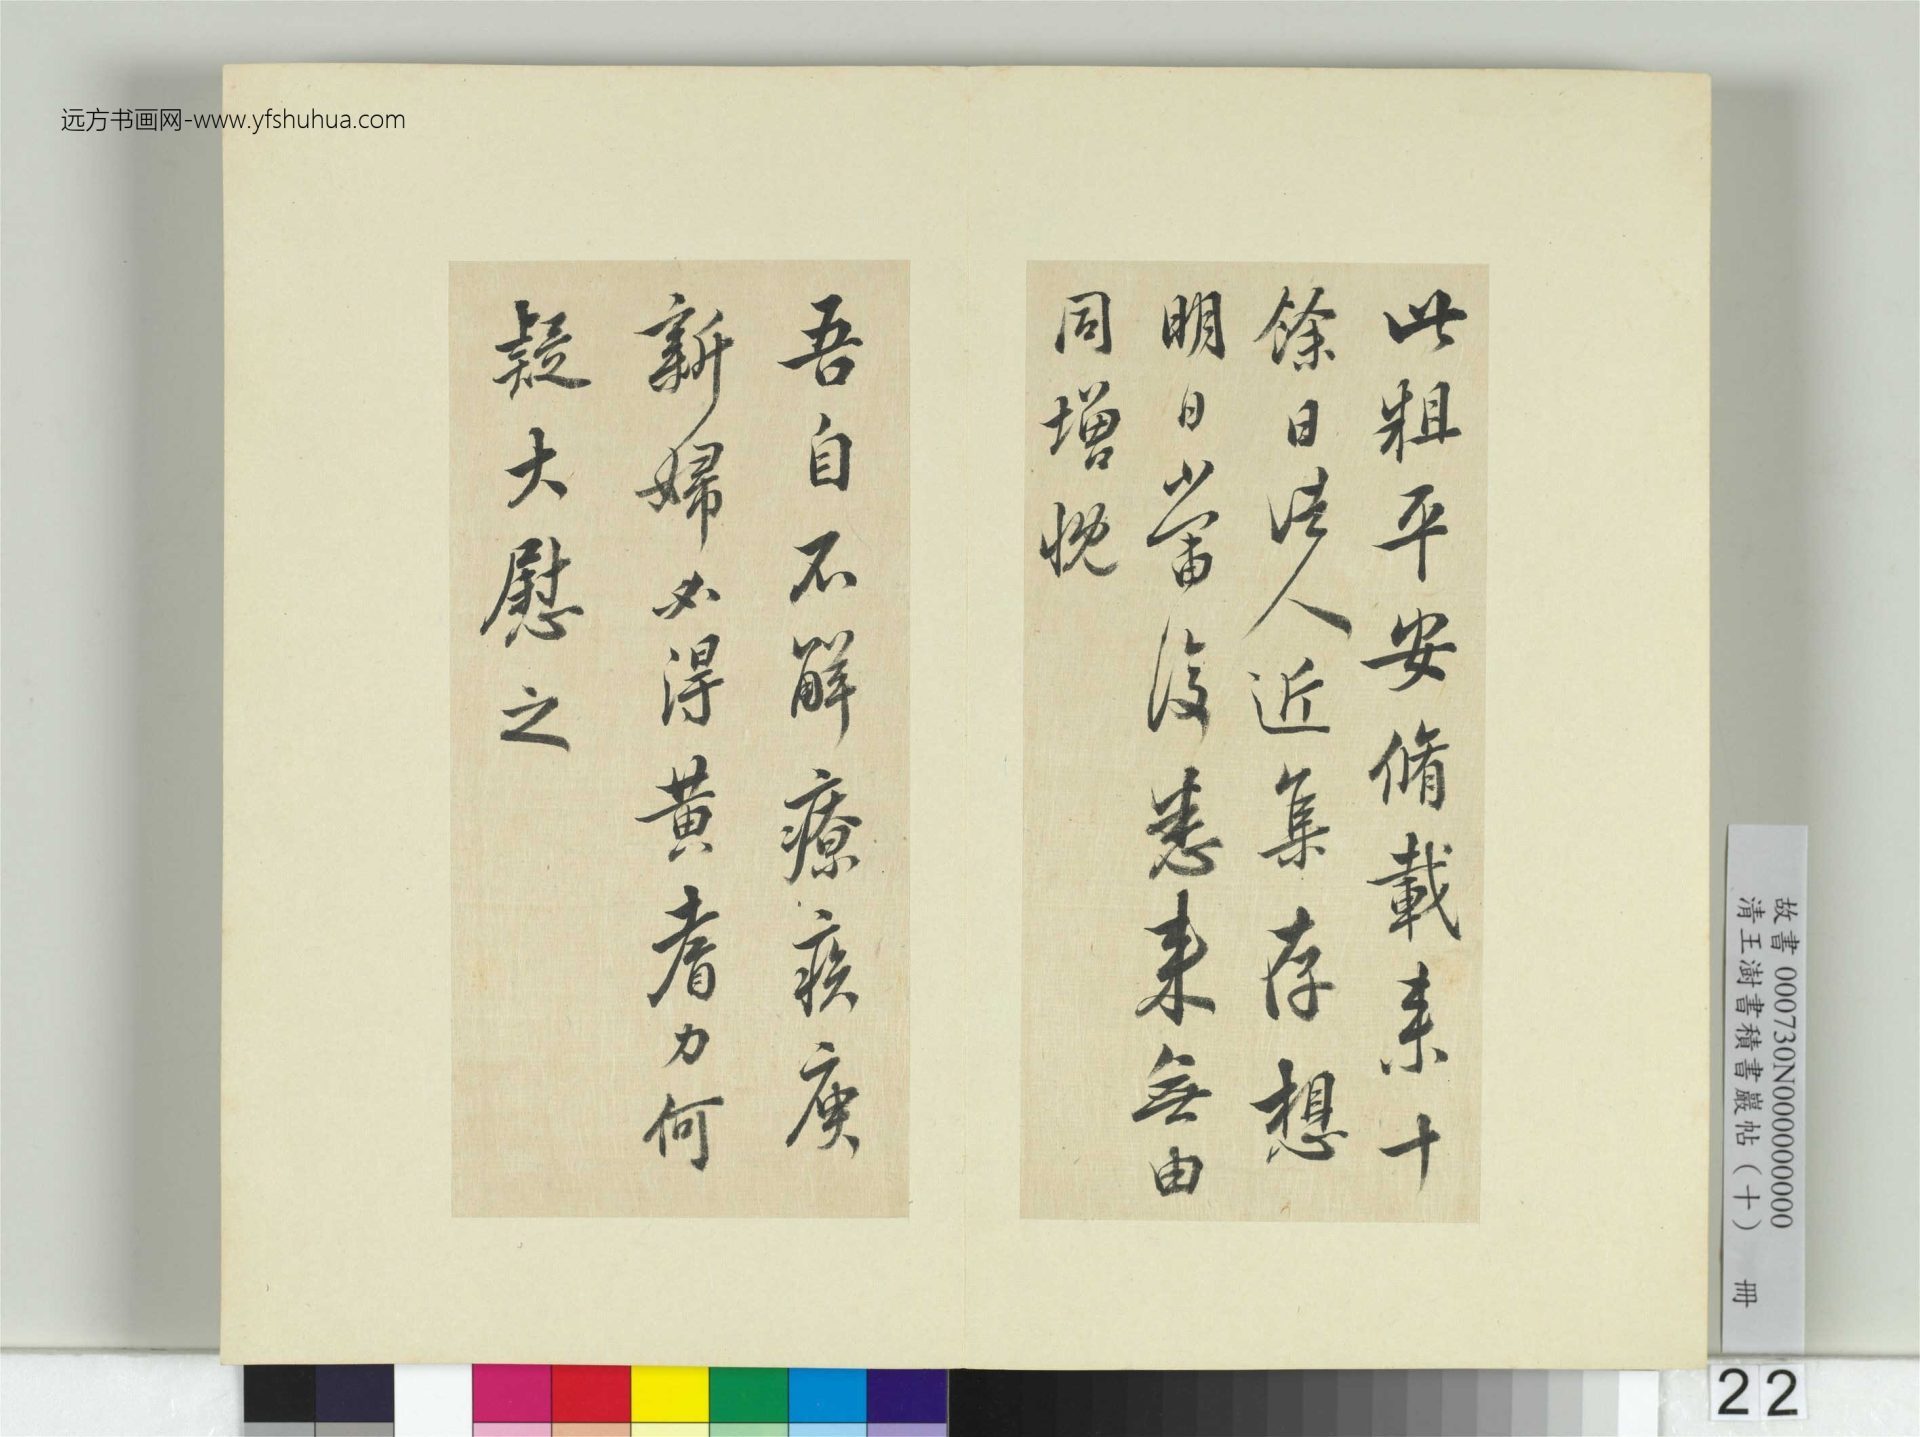 远方书画网-www.yfshuhua.com
此粗平安脩載來十
餘日諸人近集存想
明日當復悉來無由
同增慨
吾自不解療疾庾
新婦必得黃耆力何
疑大慰之
故書 000730N000000000
清王澍書積書巖帖（十） 冊
22